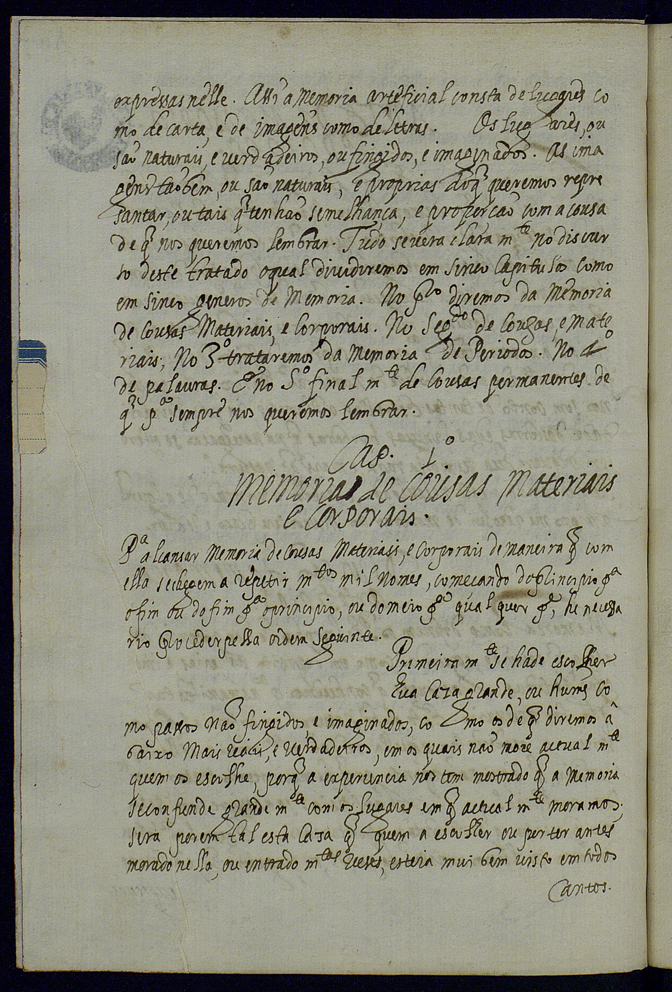 expressas nelle. Assi a Memoria artificial consta de lugares co
mo de carta, e de imagens como de letras. Os lugares, ou
saõ naturais, e verdadeiros, ou fingidos, e imaginados. As ima
gens taõbem, ou saõ naturais, e proprias do q̃ queremos repre
santar, ou tais q̃ tenhaõ semelhança, e proporcaõ com a cousa
de q̃ nos queremos lembrar. Tudo se vera clara mᵗᵉ no discur
so deste tratado o qual dividiremos em sinco Capitulos como
em sinco generos de Memoria. No pʳᵒ diremos da Memoria
de Cousas Materiais, e Corporais. No Segᵈᵒ de Cousas, e mate
riais; No 3º trataremos da Memoria de Periodos. No 4º
de palauras. E no 5º final mᵗᵉ de Cousas permanentes de
q̃ pª sempre nos queremos lembrar.
Cap. 1º
Memoria de Cousas Materiais
e Corporais.
Pª alcansar Memoria de Cousas Materiais, e Corporais de maneira q̃ com
ella se cheguem a repetir mᵗᵒˢ mil nomes, comecando do principio pª
o fim ou do fim pª o principio, ou do meio pª qual quer pᵉ, he necessa
rio proceder pella ordem seguinte.
Primeira mᵗᵉ se hade escolher
hua Caza grande, ou huns co
mo passos naõ fingidos, e imaginados, co mo os de q̃ diremos a
baixo mais reais, e verdadeiros, em os quais naõ more actual mᵗᵉ
quem os escolhe, porq̃ a experiencia nos tem mostrado q̃ a Memoria
se confunde grande mᵗᵉ com os lugares em q̃ actual mᵗᵉ moramos.
sera porem tal esta Caza q̃ quem a escolher ou por ter antes
morado nella, ou entrado mᵗᵃˢ vezes, esteia mui bem visto em todos
Cantos.